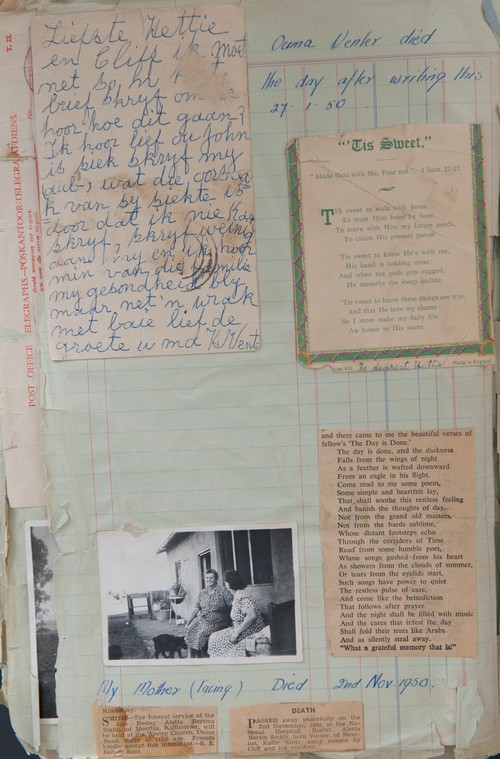 Liefste Hettie
en Cliff ik Moet
net so n
brief skryf om
hoor hoe dit gaan?
Ik hoor lief ou John
is siek skryf my
wat die
k van sy siekte is
door dat ik nie kan
skryf, skryf weinig
aan my en ik hoor
min van die familie
my gesondheid bly
maar net 'n wrak
met baie liefde
groete u ma
T. 22.
POST OFFICE TELEGRAPHS—POSKANTOOR-TELEGRAAFDIENS
Ouma Venter died
the day after writing this
27 . 1 . 50
"'Tis Sweet."
"Abide thou with Me, Fear not"—1 Sam. 22-23
'TIS sweet to walk with Jesus,
To trust Him hour by hour,
To leave with Him my future needs,
To claim His present power.
'Tis sweet to know He's with me,
His hand is holding mine;
And when the path gets rugged,
He smooths the steep incline.
'Tis sweet to know these things are true,
And that He bore my shame
So I must make my daily life
An honor to His name.
To dearest Hettie
Made in England
and there came to me the beautiful verses of
fellow's 'The Day is Done.'
The day is done, and the darkness
Falls from the wings of night
As a feather is wafted downward
From an eagle in his flight.
Come read to me some poem,
Some simple and heartfelt lay,
That shall soothe this restless feeling
And banish the thoughts of day,
Not from the grand old masters,
Not from the bards sublime,
Whose distant footsteps echo
Through the corridors of Time
Read from some humble poet,
Whose songs gushed from his heart
As showers from the clouds of summer,
Or tears from the eyelids start,
Such songs have power to quiet
The restless pulse of care,
And come like the benediction
That follows after prayer.
And the night shall be filled with music
And the cares that infest the day
Shall fold their tents like Arabs
And as silently steal away.
"What a grateful memory that is!"
My Mother (Facing) Died 2nd Nov. 1950.
Kimberley.
SMITH—The funeral service of the
late Hester Aletta Bertina
Smith, of
be held at the
Friends
kindly accept this intimation.—E. B.
DEATH
PASSED away peacefully on the
2nd November, 1950, at the
Hospital, Hester Aletta
Bertina Smith, born Venter, of
Kaffir River,
Cliff and